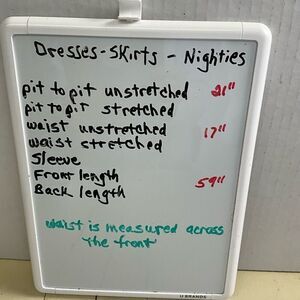 Dresses-Skirts - Nighties
pit to pit unstretched 21"
pit to pit stretched
waist unstretched 17"
waist stretched
Sleeve
Front length 59"
Back length
waist is measured across
the front
U BRANDS